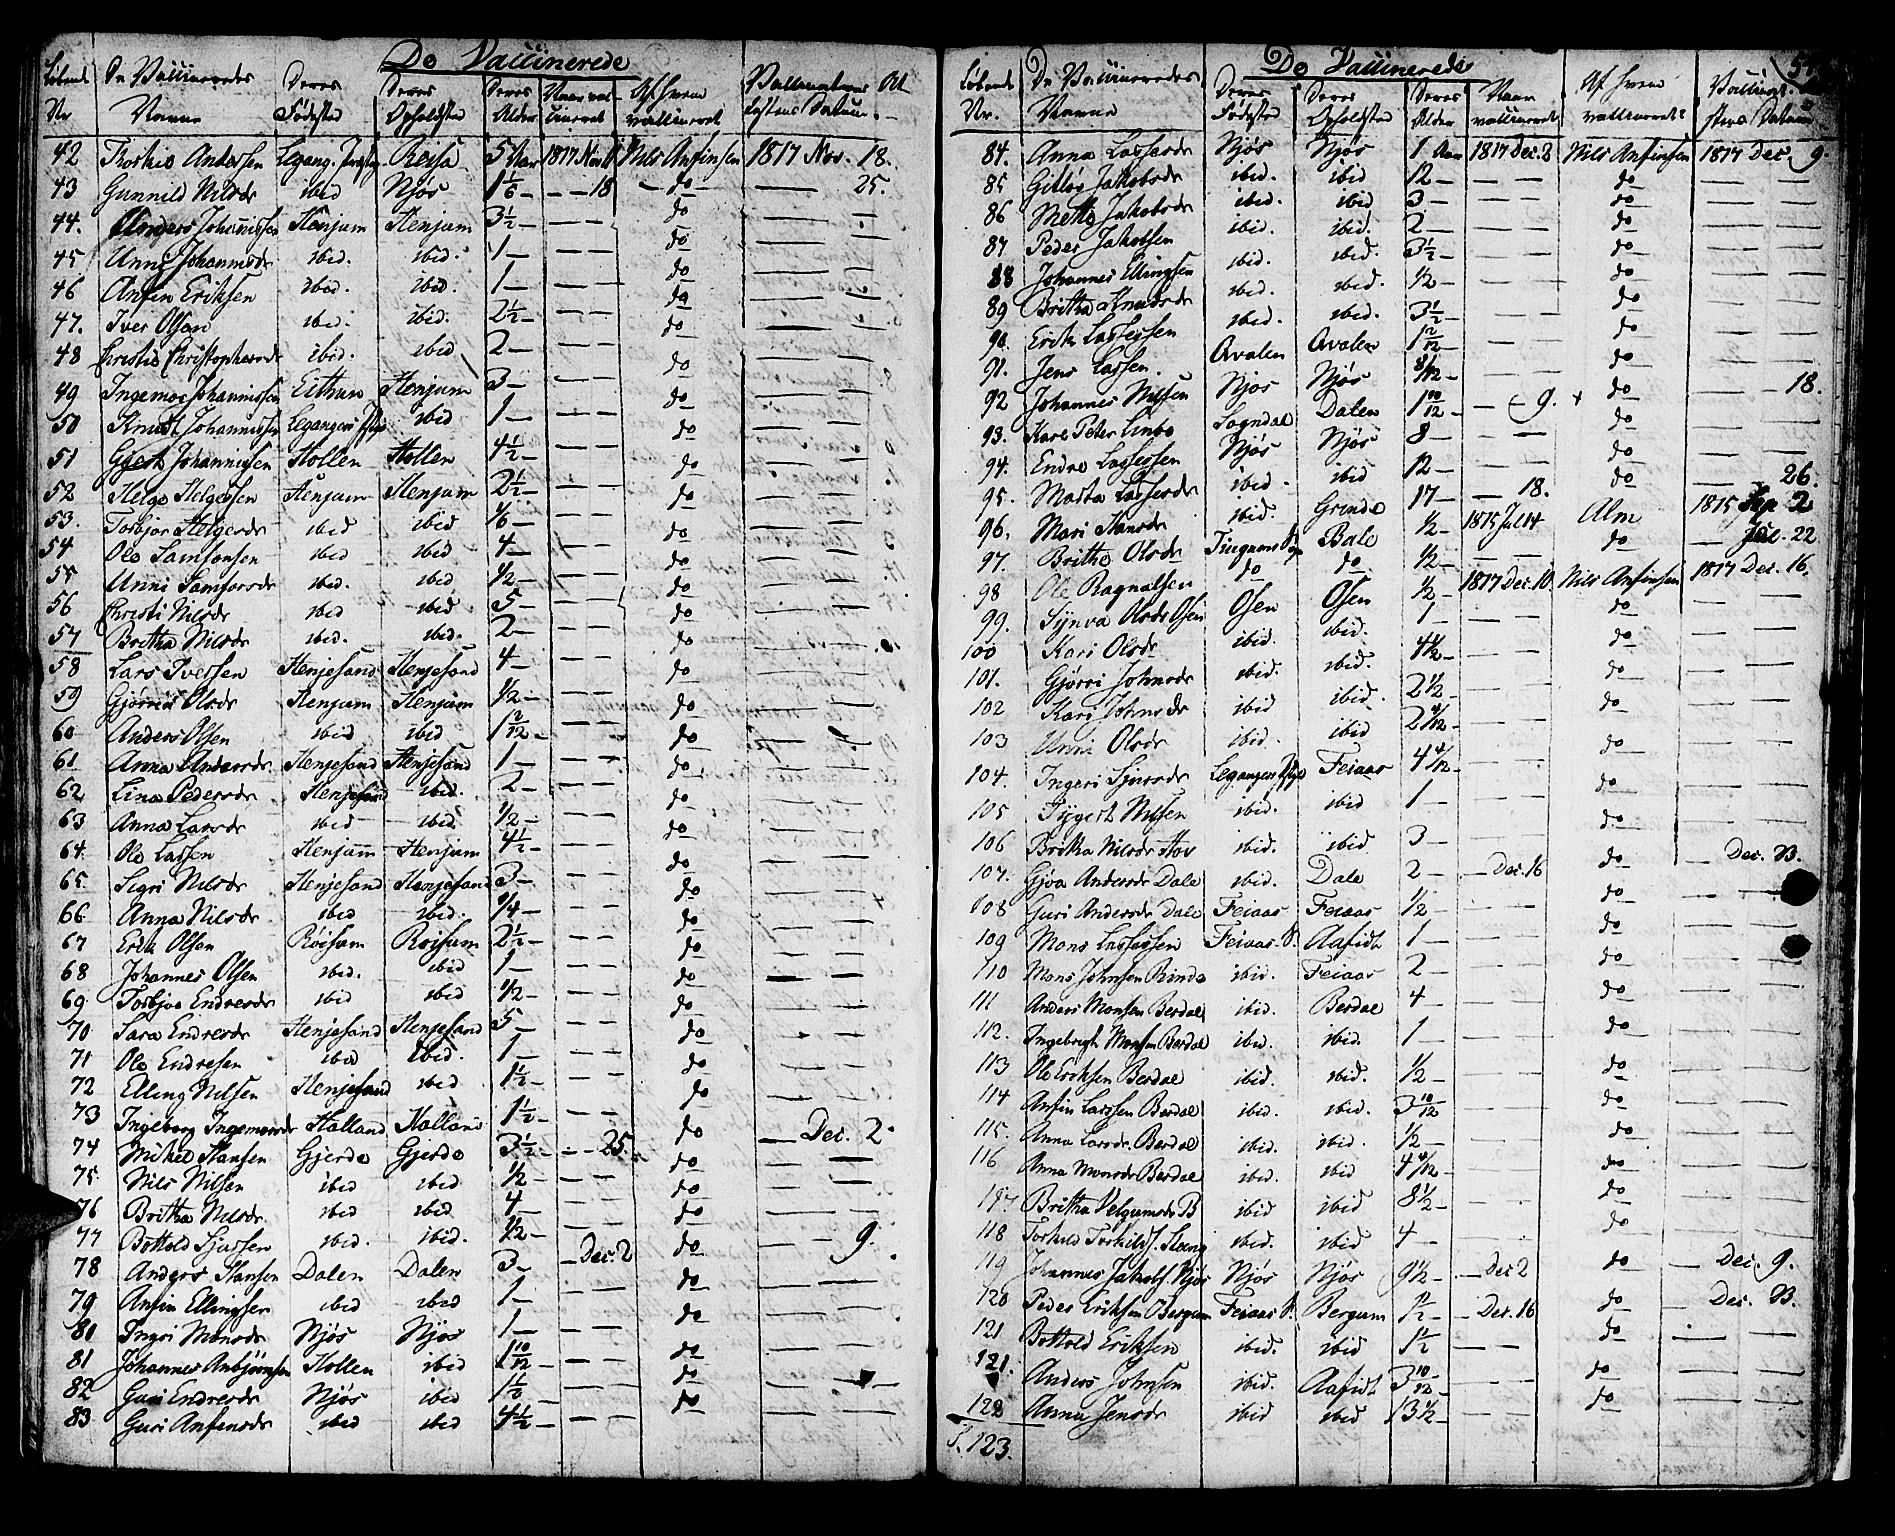 De Vaccinerede
Løbende Nr De Vaccineredes Navne Deres Fødested Deres Opholdsted Deres Alder Naar vaccineret Af hvem vaccineret
42 Andersen Reisa 5 Aar 1817 Nov. Nils Anfinsen 1817 Nov. 18.
43 Gunnild Nilsdr ibid Njøs 1 1/6 — — 18 — do — — 25.
44. Anders Johannissen Henjum Henjum 3 1/2 — — — do — —
45 Unni Johannisdr ibid. ibid. 1 — — — do — —
46 Anfin Eriksen ibid. ibid. 1 — — — do — —
47. Iver Olsen ibid. ibid. 2 1/2 — — — do — —
48 Christie Christophersdr ibid. ibid 2 — — — do — —
49 Ingemoe Johannissen Eithun Henjum 3 — — — do — —
50 Knudt Johannissen ibid 1 — — — do — —
51 Gjert Johannissen Hollen Hollen 4 1/2 — — — do — —
52 Helge Helgessen Henjum Henjum 2 1/2 — — — do — —
53. Torbjør Helgesdr ibid ibid 1/6 — — — do — —
54 Ole Samsonsen ibid ibid 4 — — — do — —
55 Unni Samsonsdr ibid. ibid 1/2 — — — do — —
56 Christi Nilsdr ibid ibid 5 — — — do — —
57 Britha Nilsdr ibid. ibid. 2 — — — do — —
58 Lars Iversen Henjesand Henjesand 4 — — — do — —
59 Gjørrui Olsdr Henjum Henjum 1/2 — — — do — —
60 Anders Olsen ibid ibid 1 2/12 — — — do — —
61 Anna Andersdr Henjesand Henjesand 1 — — — do — —
62 Lina Pedersdr Henjesand ibid. 2 — — — do — —
63 Anna Larsdr ibid ibid 1/2 — — — do — —
64. Ole Larsen Henjum Henjum 4 1/2 — — — do — —
65. Sigri Nilsdr Henjesand Henjesand 3 — — — do — —
66 Anna Nilsdr ibid ibid. 1/4 — — — do — —
67 Erik Olsen Røisum Røisum 2 1/2 — — — do — —
68 Johannes Olsen ibid. ibid 1 — — — do — —
69. Torbjoe Endresdr ibid ibid 1/2 — — — do — —
70 Sara Endresdr Henjesand Henjesand 5 — — — do — —
71 Ole Endresen ibid ibid. 1 — — — do — —
72 Elling Nilsen Henjesand ibid 1 1/2 — — — do — —
73 Ingeborg Ingemoesdr Halland Halland 1 1/2 — — — do — Dec. 2.
74 Mikel Hansen Gjerde Gjerde 3 1/2 — — 25. do — —
75. Nils Nilsen ibid ibid 1/2 — — — do — —
76 Britha Nilsdr. ibid ibid. 4 — — — do — —
77 Bottold Sjursen ibid. ibid. 1/2 — — — do — 9.
78 Anders Hansen Dalen Dalen 3 — Dec. 2 do — —
79 Anfin Ellingsen ibid ibid 1 — — — do — —
80 Ingri Monsdr Njøs Njøs 1 — — — do — —
81 Johannes Anbjørnsen Hollen ibid 1 10/12 — — — do — —
82 Guri Endresdr Njøs ibid 1 1/2 — — — do — —
83 Guri Anfinsdr ibid ibid 4 1/2 — — — do — —
De Vaccinerede
Løbende Nr. De Vaccineredes Navne Deres Fødested Deres Opholdsted Deres Alder Naar vaccineret Af hvem vaccineret?
84. Anna Lassesdr Njøs Njøs 1 Aar 1817 Dec. 2 Nils Anfinsen 1817 Dec. 9.
85 Gitløg Jakobsdr ibid. ibid 12 — — — do — —
86 Mette Jakobsdr ibid. ibid 3 — — — do — —
87 Peder Jakobsen ibid. ibid. 2 — — — do — —
88 Johannes Ellingsen ibid. ibid. 3 1/2 — — — do — —
89 Britha Knudsdr ibid. ibid. 1/2 — — — do — —
90. Erik Lassessen ibid. ibid. 3 1/2 — — — do — —
91. Jens Lassen. Qvalen Qvalen 1 2/12 — — — do — —
92 Johannes Nilsen Njøs Njøs 8/12 — — — do — 18.
93. Kare Peter Linbo Sogndal Dalen 1 10/12 — — 9. do — —
94. Endre Lassessen Njøs Njøs 8 — — — do — —
95. Marta Lassesdr ibid. ibid 12 — — — do — 26.
96. Mari Hansdr ibid. Grinde 17 — — 18. Alm 1815 Sep 2
97. Britha Olsdr Bale 1/2 — 1815 Jul 14 do — Jul. 22
98 Ole Ragnalsen do do 1/2 — 1817 Dec. 10. Nils Anfinsen 1817 Dec. 16.
99. Synva Olsdr Osen Osen Osen 1/2 — — — do — —
100 Kari Olsdr ibid. ibid. 1 — — — do — —
101. Gjørri Johnsdr ibid. ibid. 4 1/2 — — — do — —
102 Kari Johnsdr ibid ibid. 2 1/2 — — — do — —
103 Unni Olsdr ibid. ibid 2 4/12 — — — do — —
104. Ingeri Sjursdr Feiaas 4 4/12 — — — do — —
105 Sygert Nilsen ibid. ibid 1 — — — do — —
106 Britha Nilsdr Hov ibid. ibid 3 — — — do — Dec. 23.
107. Gjøa Andersdr Dale ibid. Dale 2 — Dec. 16 do — —
108 Guri Andersdr Dale Feiaas Feiaas 1/2 — — — do — —
109 Mons Lassessen Feiaas Aafidt 1 — — — do — —
110 Mons Johnsen Rinde ibid. Feiaas 2 — — — do — —
111 Anders Monsen Berdal ibid. Berdal 4 — — — do — —
112. Ingebrigt Monsen Berdal ibid. ibid. 1 — — — do — —
113 Ole Eriksen Berdal ibid. ibid. 1/2 — — — do — —
114 Anfin Larssen Berdal ibid. ibid. 3 10/12 — — — do — —
115. Anna Larsdr. Berdal ibid. ibid. 1/2 — — — do — —
116 Anna Monsdr Berdal ibid. ibid 4 4/12 — — — do — —
117. Britha Velgumsdr B ibid ibid 8 1/2 — do — —
118 Torkild Torkilds. Stang ibid. ibid. 4 — do — —
119 Johannes Jakobs. Njøs Njøs Njøs 9 1/2 — Dec 2 do — Dec. 9.
120 Peder Eriksen Bergum Feiaas Bergum 1/2 — Dec. 16 do — Dec. 23.
121 Bottold Eriksen ibid. ibid 1 1/2 — — — do — —
121. Anders Johnsen ibid. Aafidt 3 10/12 — — — do — —
122 Anna Jensdr ibid ibid 13 1/2 — — — do — —
S. 123.